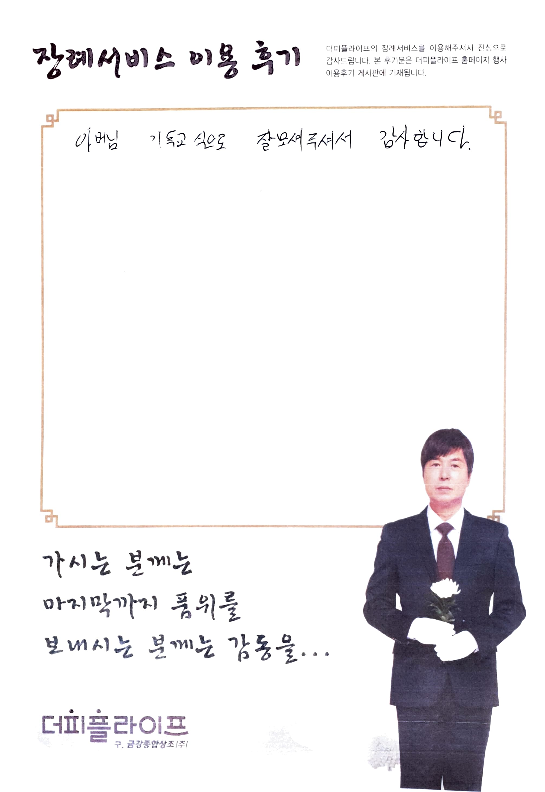 장례서비스 이용 후기
더피플라이프의 장례서비스를 이용해주셔서 진심으로
감사드립니다. 본 후기문은 더피플라이프 홈페이지 행사
이용후기 게시판에 기재됩니다.
아버님 기독교식으로 잘모셔주셔서 감사합니다.
가시는 분께는
마지막까지 품위를
보내시는 분께는 감동을...
더피플라이프
구. 금강종합상조(주)